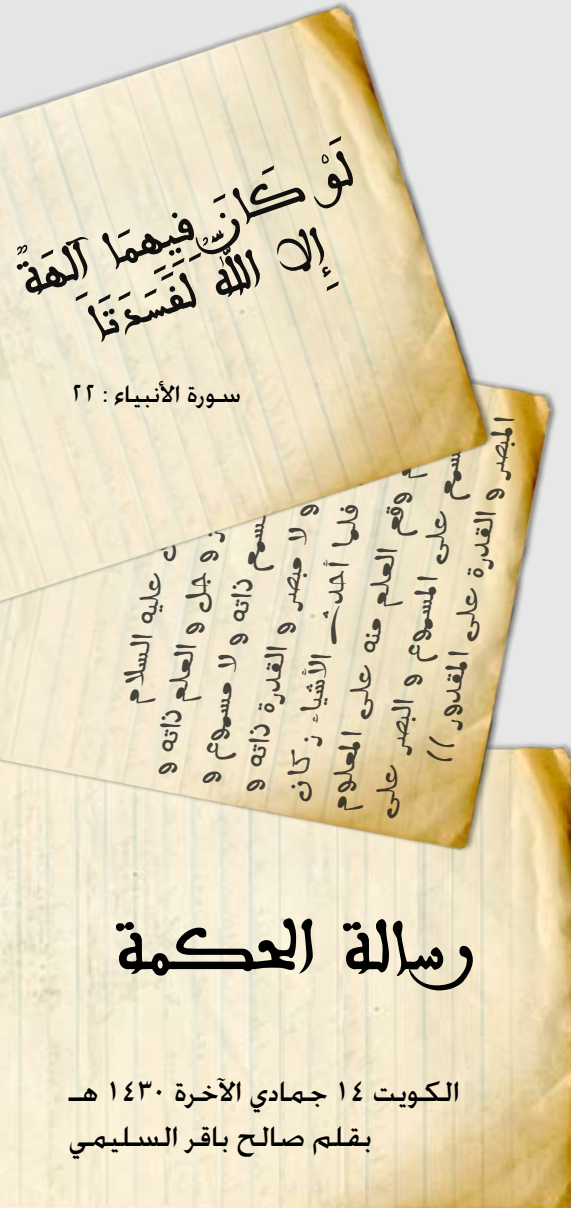 لَوْ كَانَ فِيهِمَا آلِهَةٌ
إِلا اللَّه لَفَسَدَتَا
سورة الأنبياء : ٢٢
عليه السلام
و جل و العلم ذاته و
ذاته و لا مسموع و
و لا مبصر و القدرة ذاته و
فلما أحدث الأشياء ز كان
وقع العلم منه على المعلوم
على المسموع و البصر على
المبصر و القدرة على المقدور ))
رسالة الحكمة
الكويت ١٤ جمادي الآخرة ١٤٣٠ هـ
بقلم صالح باقر السليمي